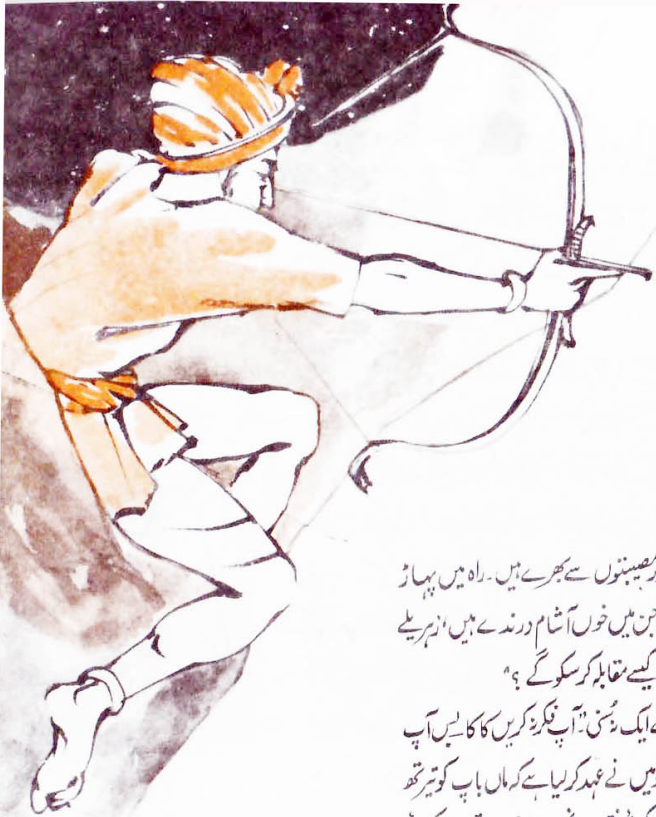 مصیبتوں سے بھرے ہیں۔ راہ میں پہاڑ
جن میں خوں آشام درندے ہیں، زہریلے
کیسے مقابلہ کر سکو گے ؟"
ایک نہ سُنی "آپ فکر نہ کریں کاکا بس آپ
میں نے عہد کر لیا ہے کہ ماں باپ کو تیرتھ